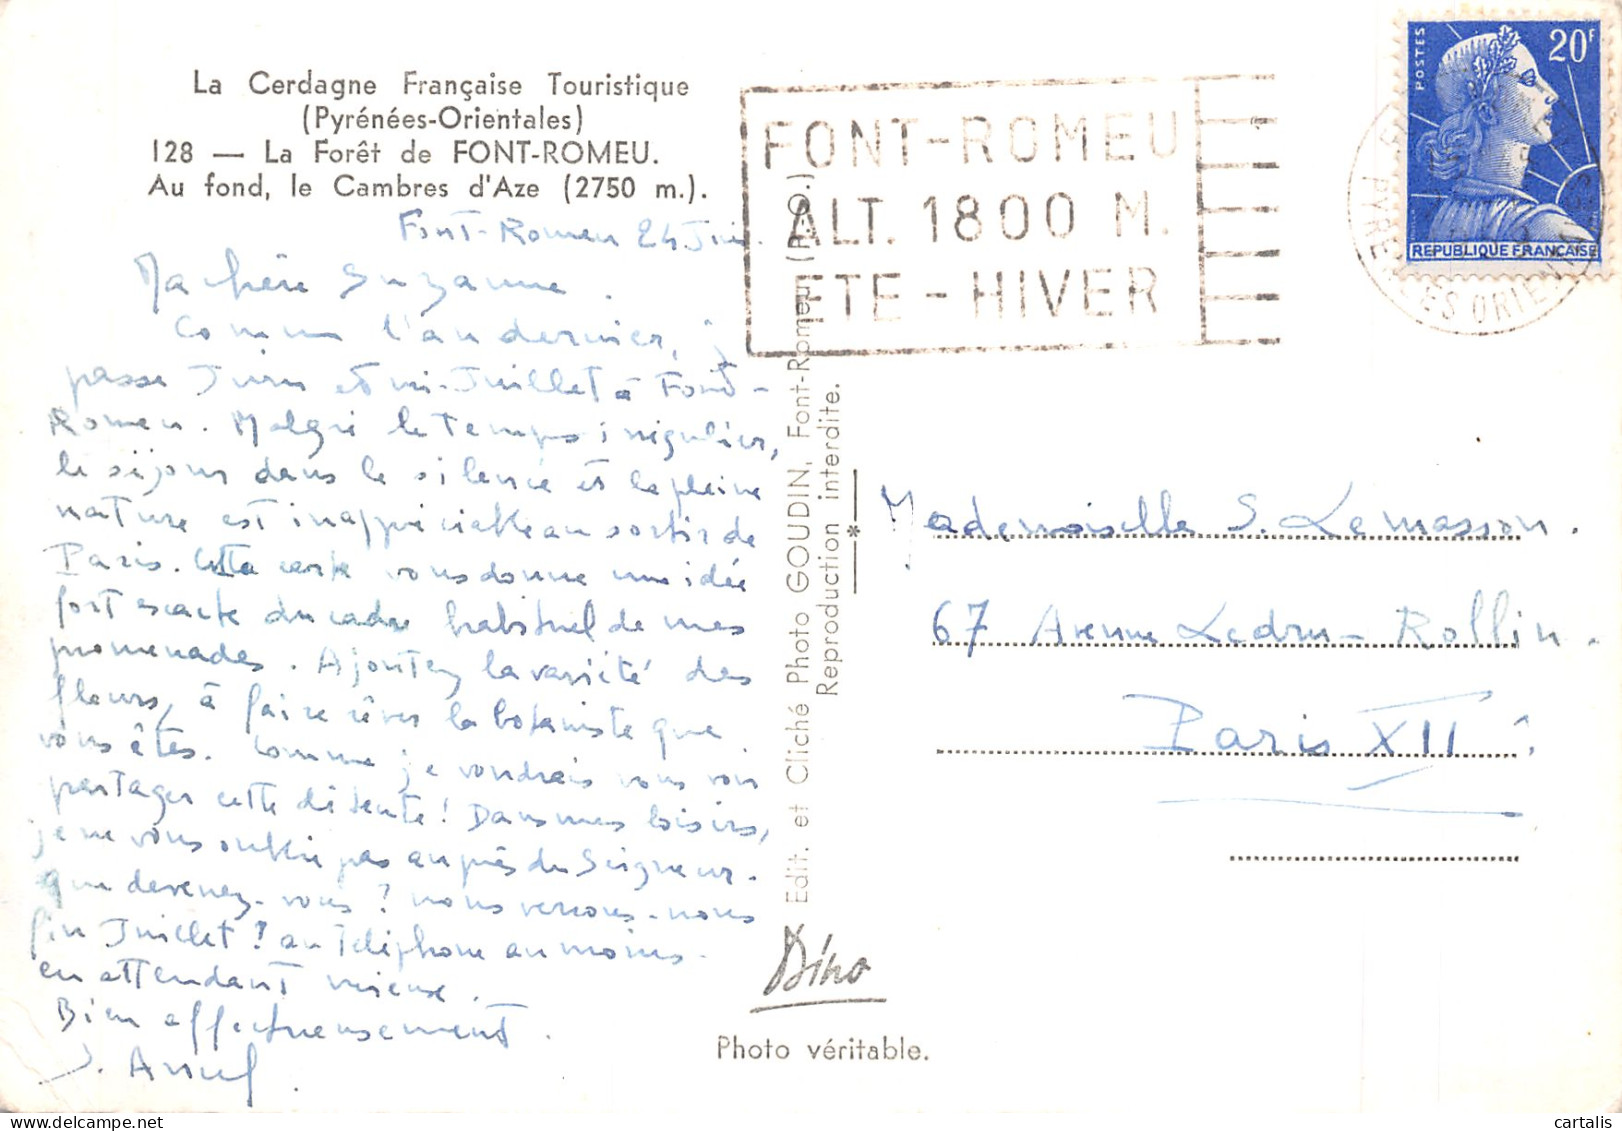 La Cerdagne Française Touristique
(Pyrénées-Orientales)
128 — La Forêt de FONT-ROMEU.
Au fond, le Cambres d'Aze (2750 m.).
Font-Romeu 24 Juin.
Ma chère Suzanne.
Comme l'an dernier, je
passe Juin et mi-Juillet à Font-
Romeu. Malgré le temps irrégulier,
le séjour dans le silence et la pleine
nature est inappréciable au sortir de
Paris. Cette carte vous donne une idée
fort exacte du cadre habituel de mes
promenades. Ajoutez la variété des
fleurs, à faire rêver la botaniste que
vous êtes. Comme je voudrais vous voir
partager cette détente! Dans mes loisirs,
je ne vous oublie pas auprès du Seigneur.
Que devenez-vous? nous verrons-nous
fin Juillet? au téléphone au moins.
en attendant mieux.
Bien affectueusement.
J.
FONT-ROMEU
ALT. 1800 M.
ETE - HIVER
POSTES
20F
REPUBLIQUE FRANÇAISE
PYRENEES ORIENTALES
Edit. et Cliché Photo GOUDIN, Font-Romeu (P.-O.)
Reproduction interdite.
Mademoiselle S. Lemasson.
67 Avenue Ledru-Rollin.
Paris XII
Dino
Photo véritable.
cartalis
CARTALIS